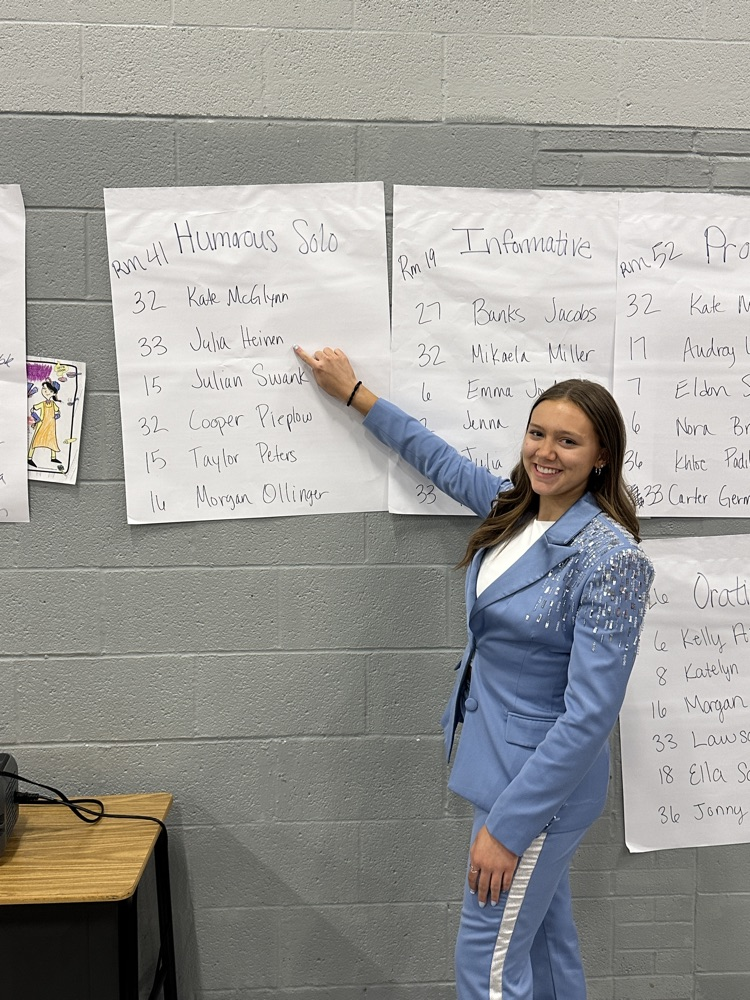 Rm 41 Humorous Solo
32 Kate McGlynn
33 Julia Heinen
15 Julian Swank
32 Cooper Pieplow
15 Taylor Peters
16 Morgan Ollinger
Rm 19 Informative
27 Banks Jacobs
32 Mikaela Miller
6 Emma
Jenna
Julia
33
Rm 52 Pro
32 Kate M
17 Audrey
7 Eldon S
6 Nora Br
36 Khloe Padi
33 Carter Germ
Orati
6 Kelly A
8 Katelyn
16 Morgan
33 Laws
18 Ella Sc
36 Jonny